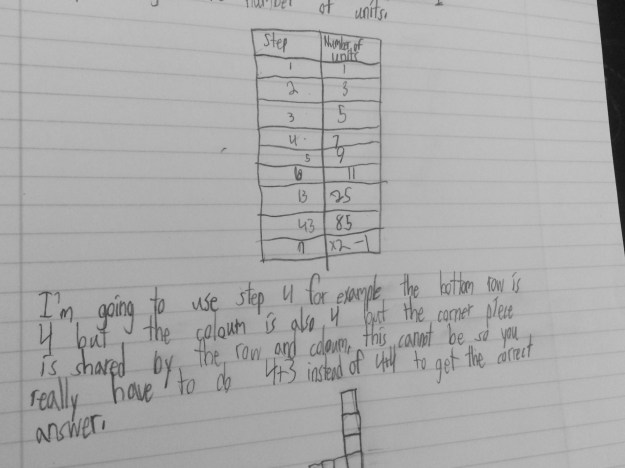 number of units.
Step Number of units
1 1
2 3
3 5
4 7
5 9
6 11
13 25
43 85
n x2-1
I'm going to use step 4 for example the bottom row is
4 but the coloum is also 4 but the corner piece
is shared by the row and coloum, this cannot be so you
really have to do 4+3 instead of 4+4 to get the correct
answer.